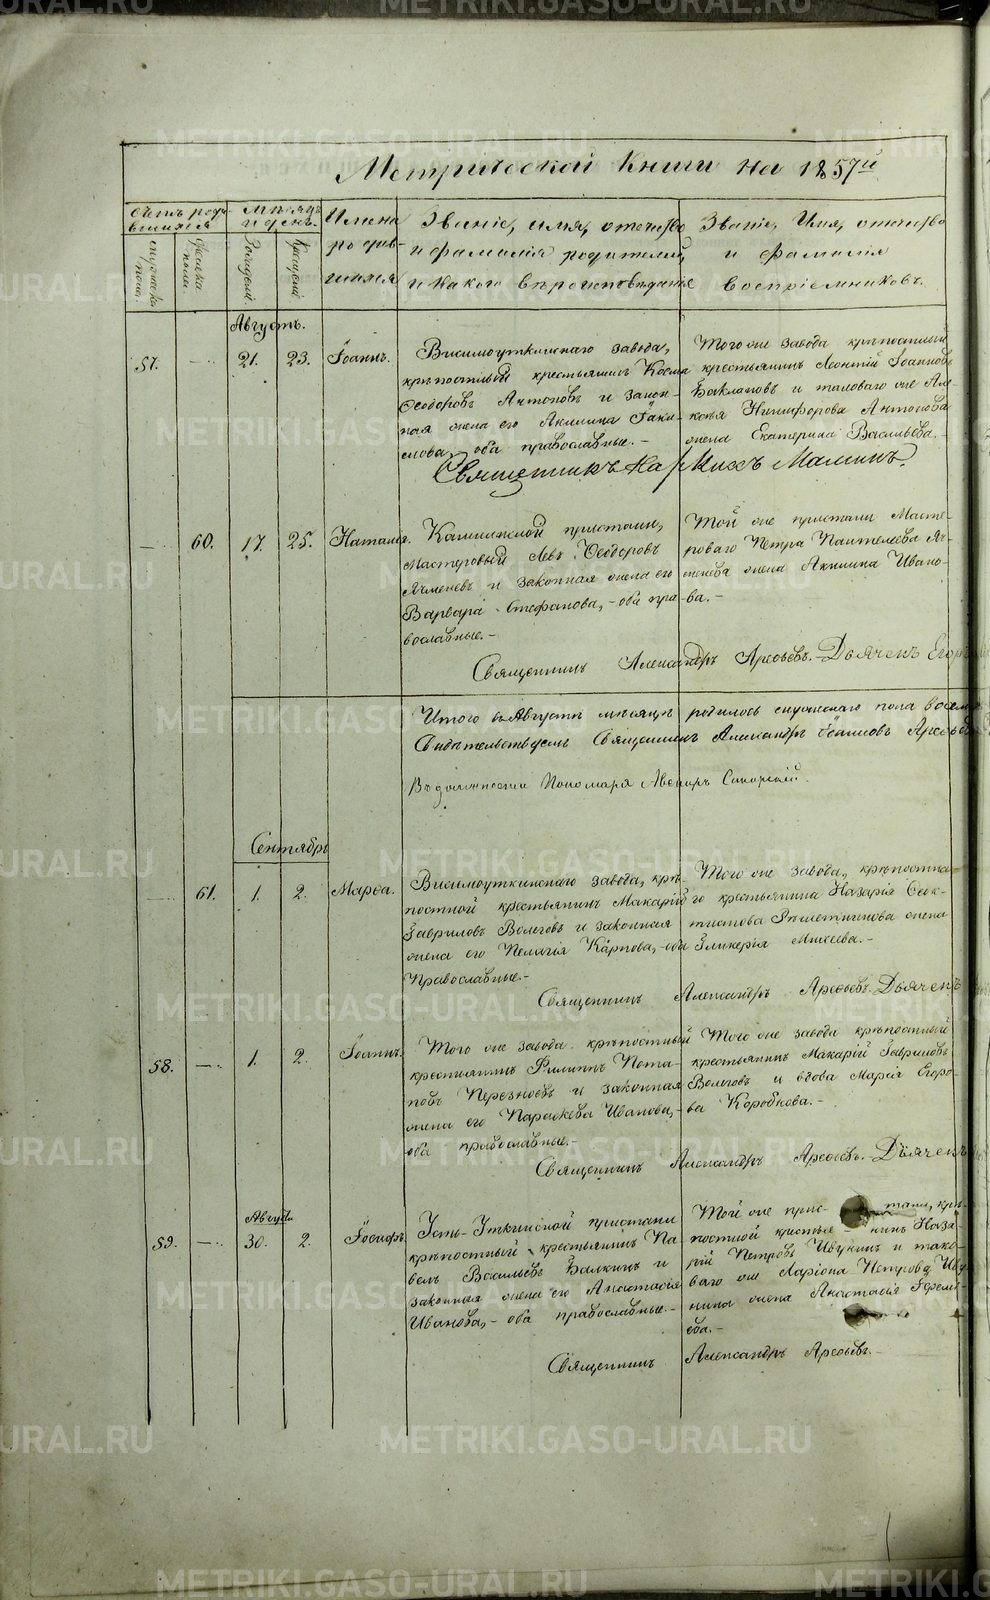 Метрической Книги на 1857й
Счетъ родившихся
Мѣсяцъ и день.
Имена родившихся
Званіе, имя, отечество и фамилія родителей, и какого вѣроисповѣданія
Званіе, Имя, отечество и фамилія Воспріемниковъ.
мужеска пола.
женска пола.
Рожденія
Крещенія
Августъ.
57. — 21. 23. Іоаннъ.
Висимоуткинскаго завода,
крѣпостный крестьянинъ Косма
Ѳеодоровъ Антоновъ и закон-
ная жена его Акилина
оба православные. —
Того же завода крѣпостный
крестьянинъ Леонтій Іоанновъ
Баклановъ и таковаго же Але-
ксѣя Никифорова Антонова
жена Екатерина Васильева. —
Священникъ Малининъ.
— 60. 17. 25. Наталія.
Каменской пристани,
Мастеровый Левъ Ѳеодоровъ
Ячменевъ и законная жена его
Варвара Стефанова, — оба пра-
вославные. —
Той же пристани Масте-
роваго Петра Пантелеева Яч-
менева жена Акилина Ивано-
ва. —
Священникъ Александръ Арефьевъ. — Дьячекъ Егоръ
Итого въ Августѣ мѣсяцѣ родилось мужескаго пола восемь
Свидѣтельствуемъ Священникъ Александръ Іоанновъ Арефьевъ
Въ должности Пономаря Авениръ
Сентябрь
61. 1. 2. Марѳа.
Висимоуткинскаго завода, крѣ-
постной крестьянинъ Макарій
Гавриловъ Волеговъ и законная
жена его Пелагія Карпова, — оба
Православные. —
Того же завода, крѣпостна-
го крестьянина Назарія Ѳеок-
тистова жена
Гликерія Михеева. —
Священникъ Александръ Арефьевъ. Дьячекъ
58. — 1. 2. Іоаннъ.
Того же завода крѣпостный
крестьянинъ Филиппъ Пота-
повъ и законная
жена его Параскева Иванова, —
оба православные. —
Того же завода крѣпостный
крестьянинъ Макарій Гавриловъ
Волеговъ и вдова Марія Егоро-
ва Коробкова. —
Священникъ Александръ Арефьевъ. — Дьячекъ
Августа
59. — 30. 2. Іосифъ.
Усть-Уткинской пристани
крѣпостный крестьянинъ Па-
велъ Васильевъ Балкинъ и
законная жена его Анастасія
Иванова, — оба православные. —
Той же прис- тани, крѣ-
постной крестья- нинъ Наза-
рій Петровъ Ивукинъ и тако-
ваго же Ларіона Петрова Иву-
кина жена Анастасія Ефремъ-
ева. —
Священникъ Александръ Арефьевъ. —
METRIKI.GASO-URAL.RU